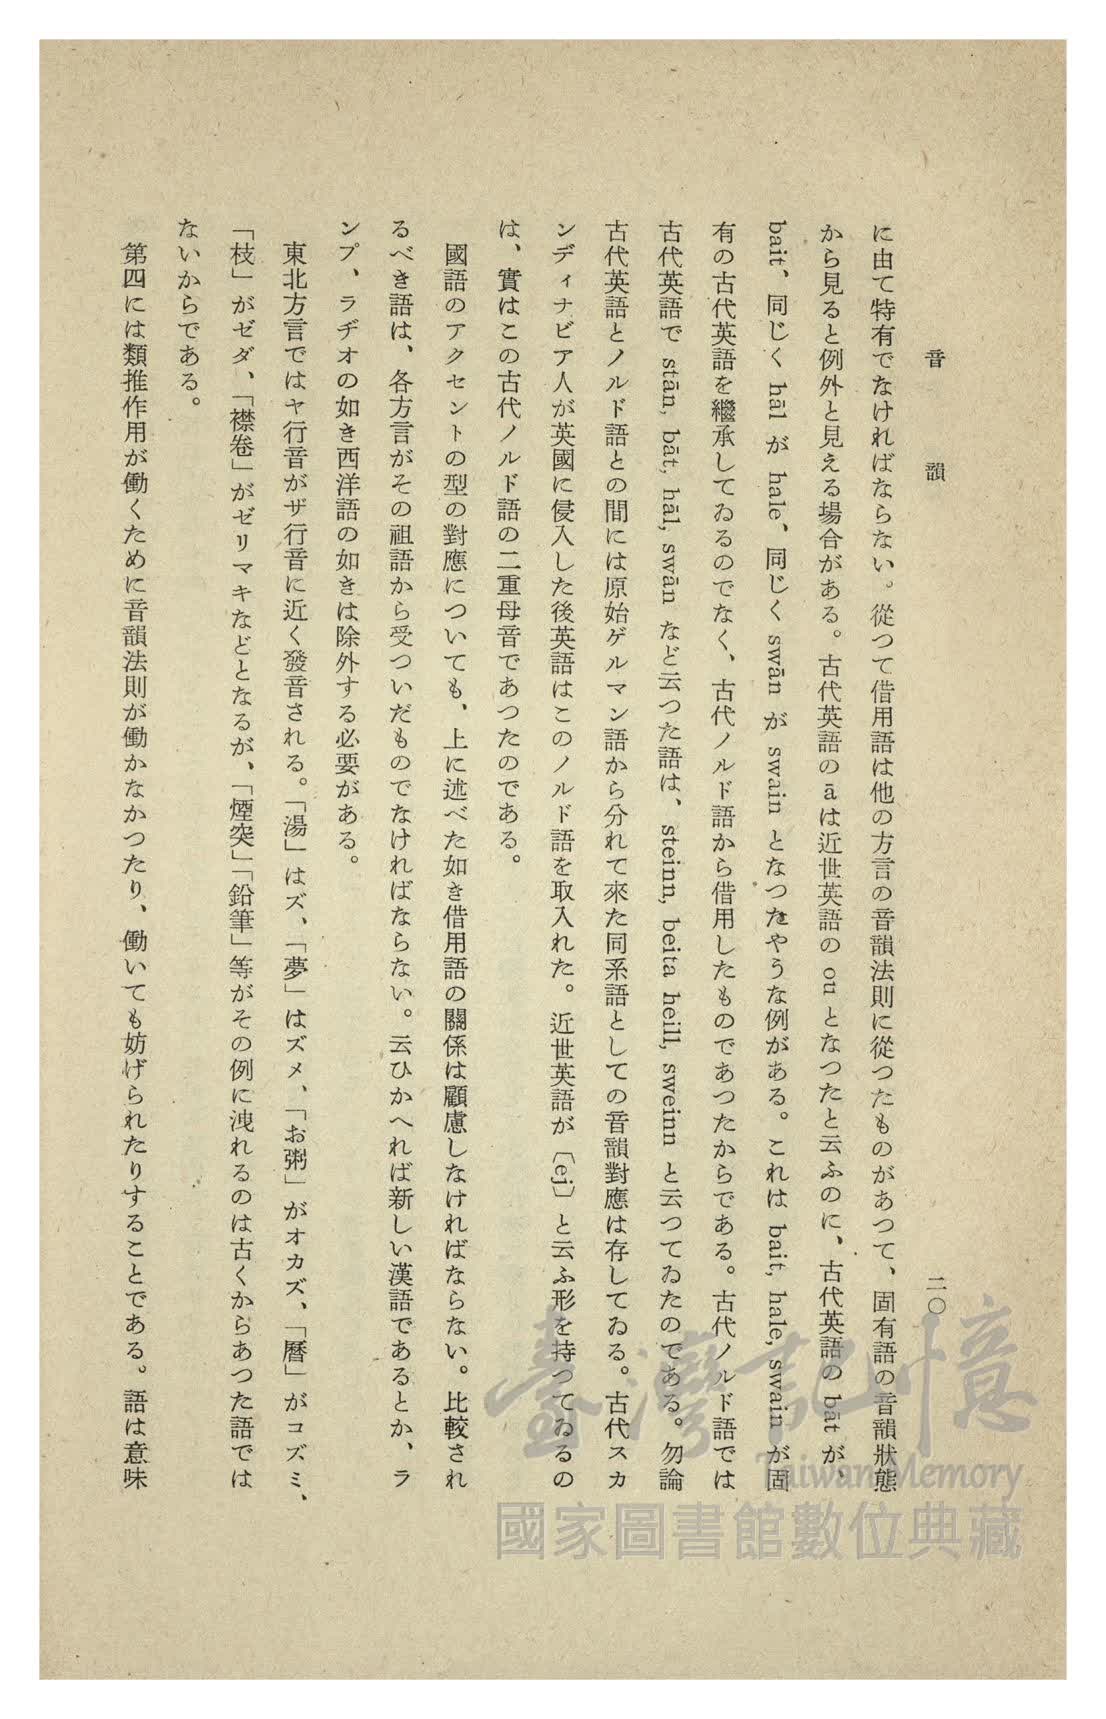 音韻
二〇
に由て特有でなければならない。從つて借用語は他の方言の音韻法則に從つたものがあつて、固有語の音韻狀態
から見ると例外と見える場合がある。古代英語のāは近世英語の ou となつたと云ふのに、古代英語の bāt が、
bait、同じく hāl が hale、同じく swān が swain となつたやうな例がある。これは bait, hale, swain が固
有の古代英語を繼承してゐるのでなく、古代ノルド語から借用したものであつたからである。古代ノルド語では
古代英語で stān, bāt, hāl, swān など云つた語は、 steinn, beita heill, sweinn と云つてゐたのである。勿論
古代英語とノルド語との間には原始ゲルマン語から分れて來た同系語としての音韻對應は存してゐる。古代スカ
ンディナビア人が英國に侵入した後英語はこのノルド語を取入れた。近世英語が〔ej〕と云ふ形を持つてゐるの
は、實はこの古代ノルド語の二重母音であつたのである。
國語のアクセントの型の對應についても、上に述べた如き借用語の關係は顧慮しなければならない。比較され
るべき語は、各方言がその祖語から受ついだものでなければならない。云ひかへれば新しい漢語であるとか、ラ
ンプ、ラヂオの如き西洋語の如きは除外する必要がある。
東北方言ではヤ行音がザ行音に近く發音される。「湯」はズ、「夢」はズメ、「お粥」がオカズ、「曆」がコズミ、
「枝」がゼダ、「襟卷」がゼリマキなどとなるが、「煙突」「鉛筆」等がその例に洩れるのは古くからあつた語では
ないからである。
第四には類推作用が働くために音韻法則が働かなかつたり、働いても妨げられたりすることである。語は意味
臺灣記憶
Taiwan Memory
國家圖書館數位典藏